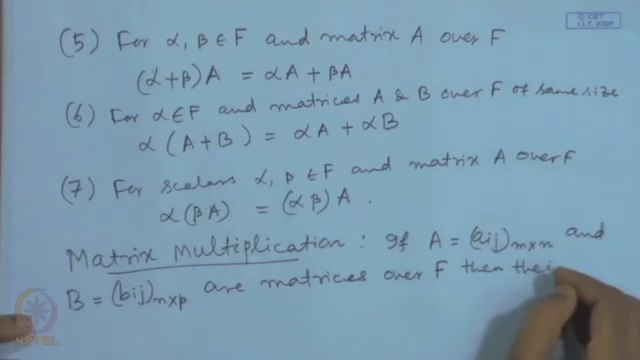 © CET
I.I.T. KGP
(5) For α, β ∈ F and matrix A over F
(α+β)A = αA + βA
(6) For α∈F and matrices A & B over F of same size
α (A+B) = αA + αB
(7) For scalars α, β ∈ F and matrix A over F
α(βA) = (αβ)A.
Matrix Multiplication : If A = (aij)m×n and
B = (bij)n×p are matrices over F then thei
NPTEL